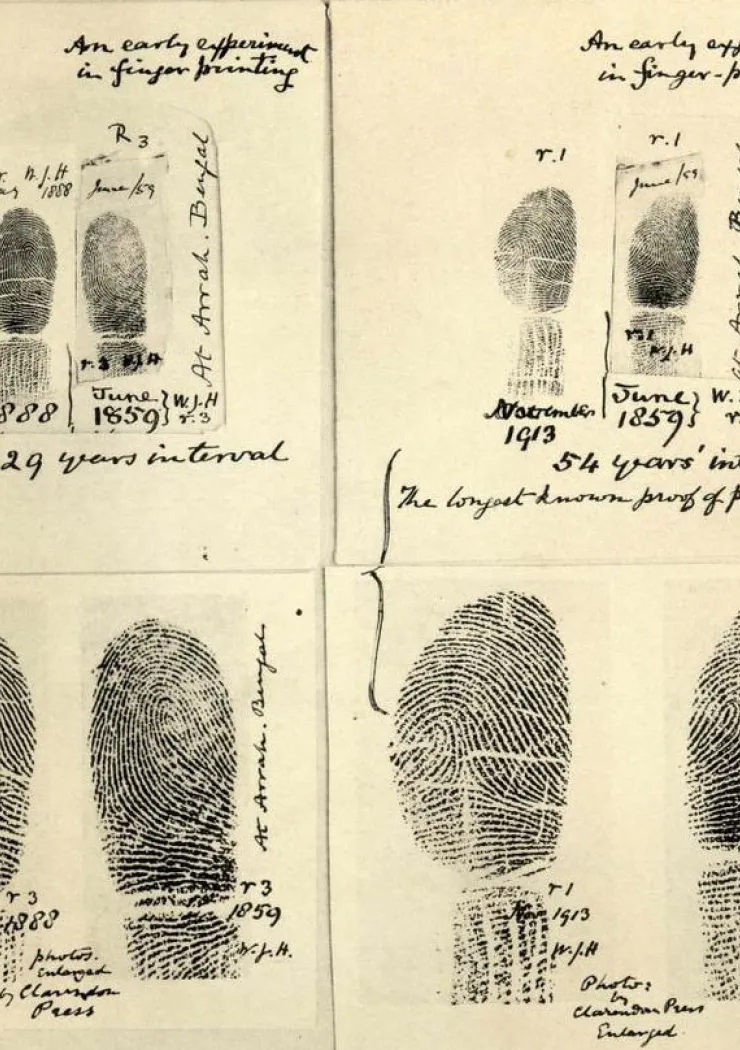 An early experiment
in finger printing
R 3
W.J.H
1888
June/59
At Arrah. Bengal
r.3 W.J.H
888
June
1859
W.J.H
r.3
29 years interval
An early exp
in finger-p
r.1
r.1
June/59
r.1
W.J.H
November
1913
June
1859
W.
54 years' int
The longest known proof of p
At Arrah. Bengal
r 3
1888
r 3
1859
W.J.H.
photos.
Enlarged
by Clarendon
Press
r 1
Nov 1913
W.J.H
Photo:
by
Clarendon Press
Enlarged.